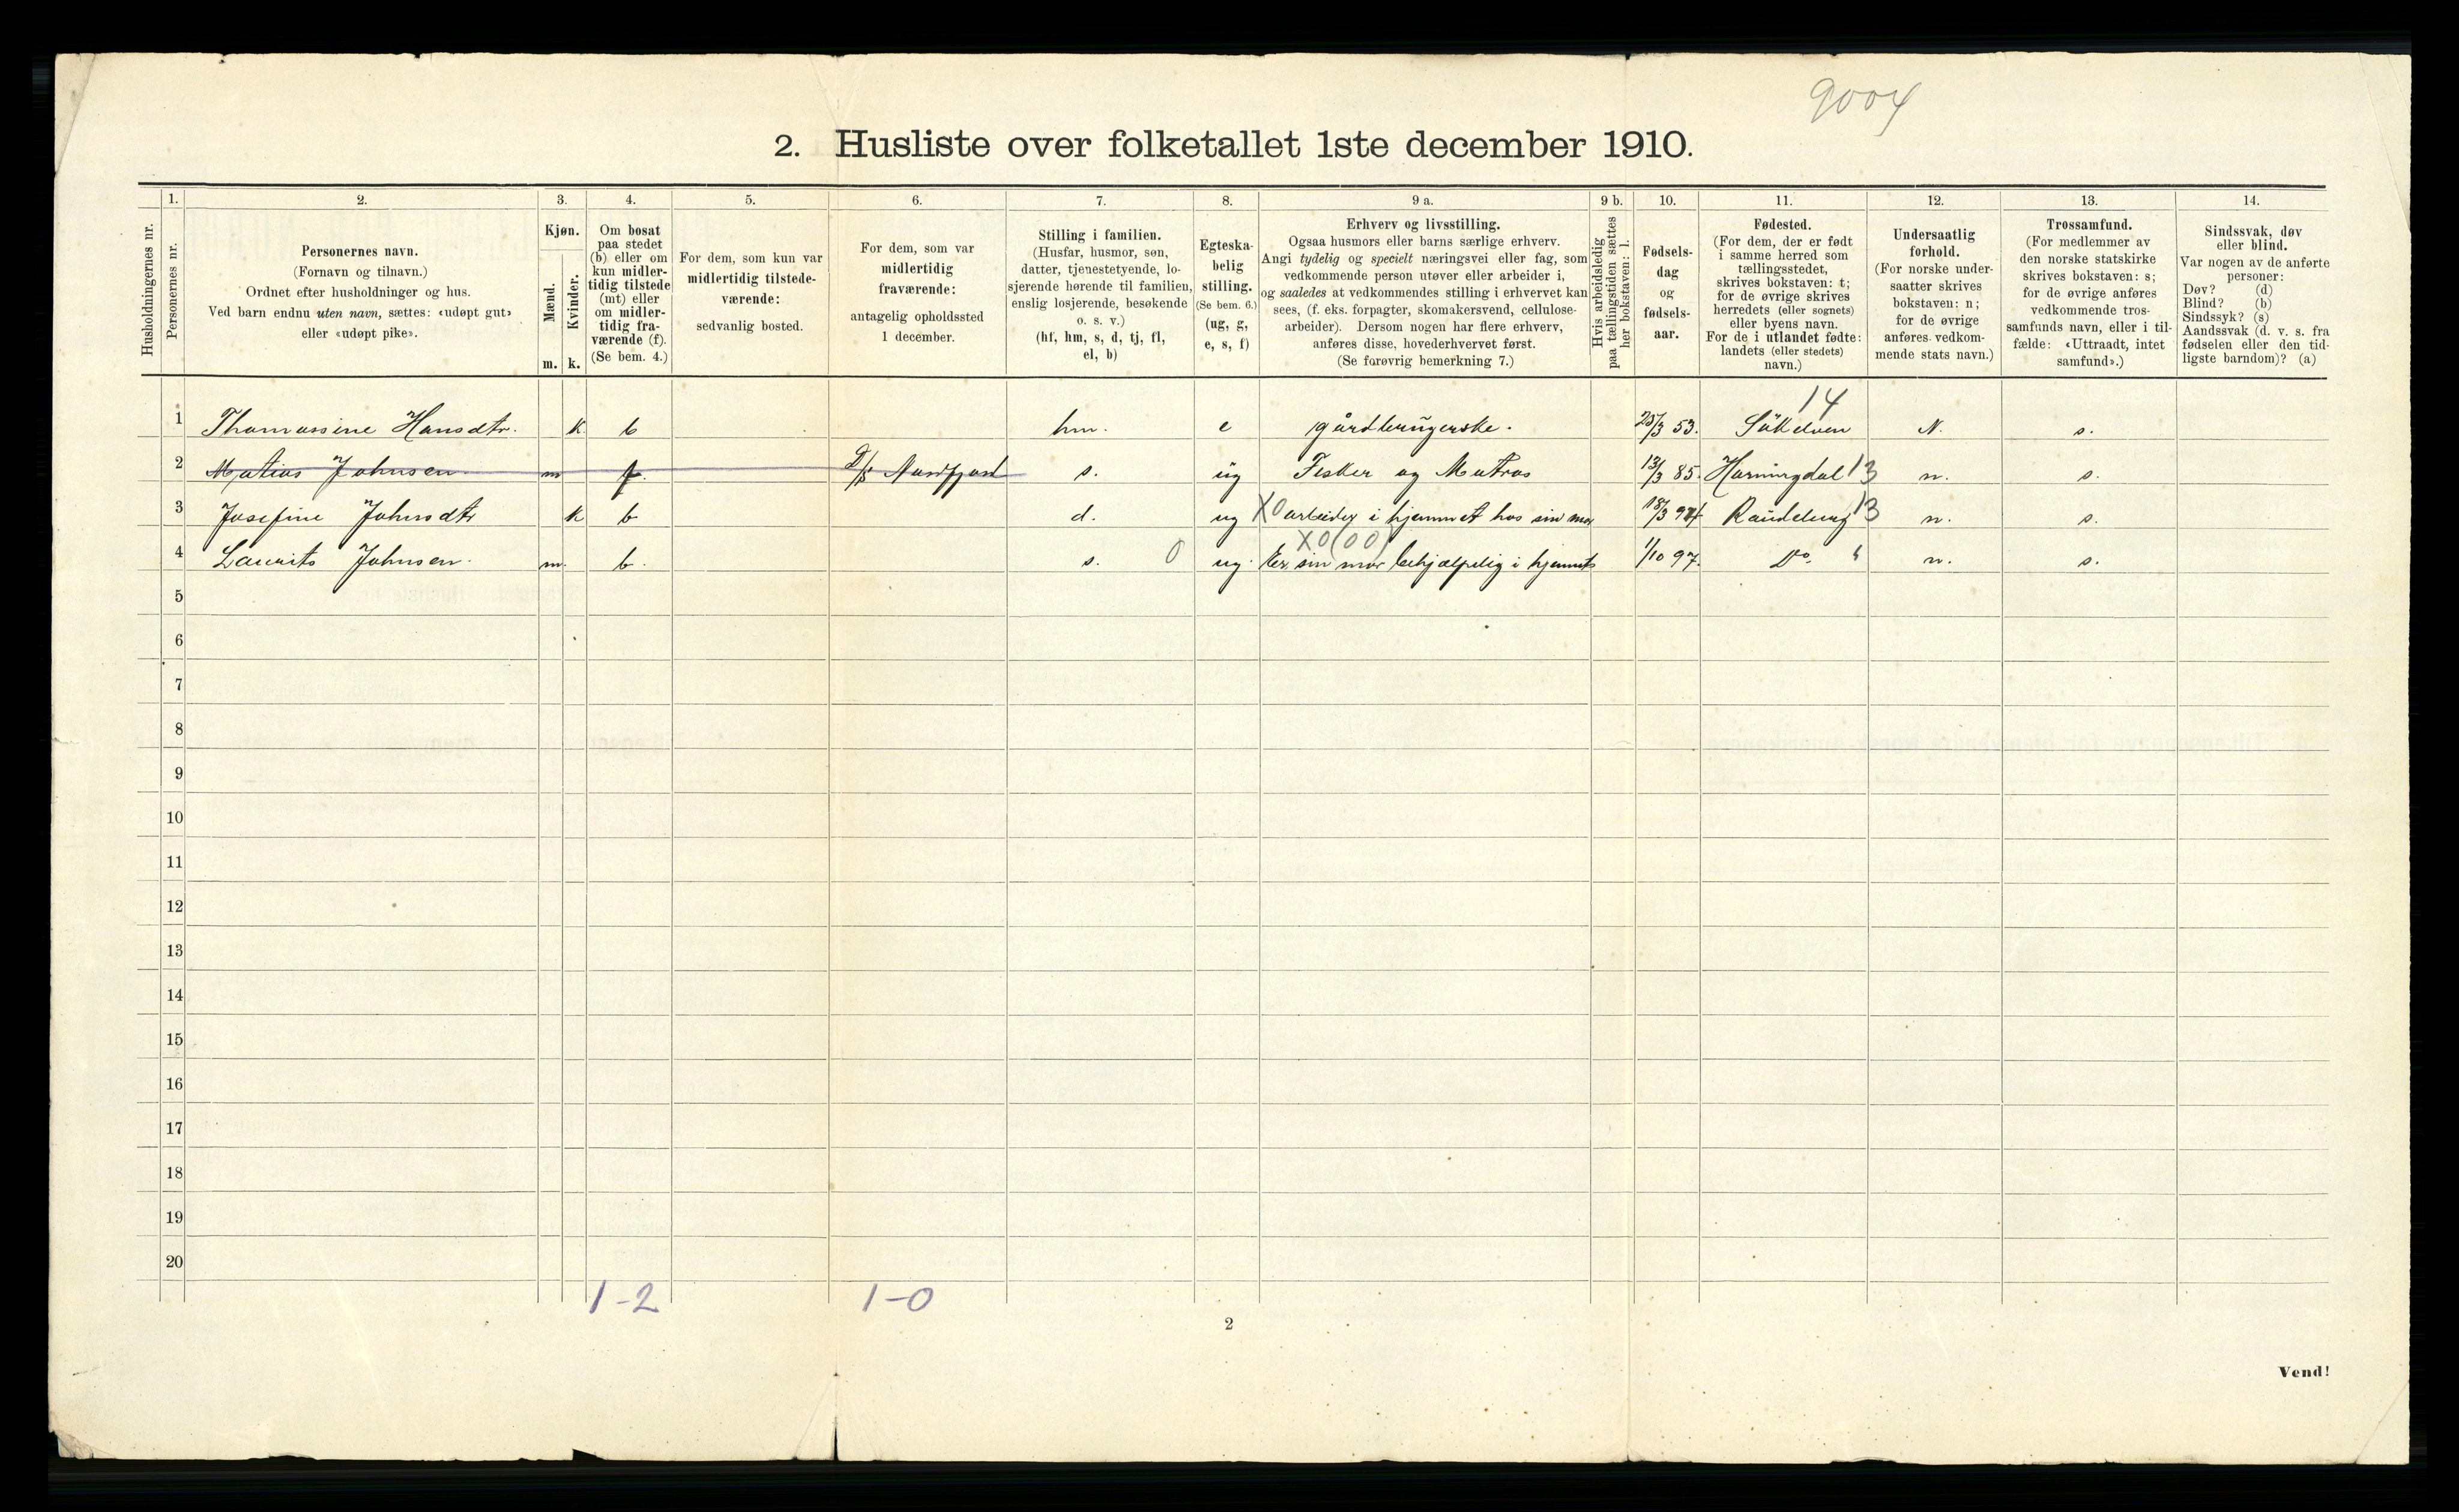 9004
2. Husliste over folketallet 1ste december 1910.
1. 2. 3. 4. 5. 6. 7. 8. 9 a. 9 b. 10. 11. 12. 13. 14.
Husholdningernes nr.
Personernes nr.
Personernes navn.
(Fornavn og tilnavn.)
Ordnet efter husholdninger og hus.
Ved barn endnu uten navn, sættes: «udøpt gut»
eller «udøpt pike».
Kjøn.
Mænd.
Kvinder.
m. k.
Om bosat
paa stedet
(b) eller om
kun midler-
tidig tilstede
(mt) eller
om midler-
tidig fra-
værende (f).
(Se bem. 4.)
For dem, som kun var
midlertidig tilstede-
værende:
sedvanlig bosted.
For dem, som var
midlertidig
fraværende:
antagelig opholdssted
1 december.
Stilling i familien.
(Husfar, husmor, søn,
datter, tjenestetyende, lo-
sjerende hørende til familien,
enslig losjerende, besøkende
o. s. v.)
(hf, hm, s, d, tj, fl,
el, b)
Egteska-
belig
stilling.
(Se bem. 6.)
(ug, g,
e, s, f)
Erhverv og livsstilling.
Ogsaa husmors eller barns særlige erhverv.
Angi tydelig og specielt næringsvei eller fag, som
vedkommende person utøver eller arbeider i,
og saaledes at vedkommendes stilling i erhvervet kan
sees, (f. eks. forpagter, skomakersvend, cellulose-
arbeider). Dersom nogen har flere erhverv,
anføres disse, hovederhvervet først.
(Se forøvrig bemerkning 7.)
Hvis arbeidsledig
paa tællingstiden sættes
her bokstaven: l.
Fødsels-
dag
og
fødsels-
aar.
Fødested.
(For dem, der er født
i samme herred som
tællingsstedet,
skrives bokstaven: t;
for de øvrige skrives
herredets (eller sognets)
eller byens navn.
For de i utlandet fødte:
landets (eller stedets)
navn.)
Undersaatlig
forhold.
(For norske under-
saatter skrives
bokstaven: n;
for de øvrige
anføres vedkom-
mende stats navn.)
Trossamfund.
(For medlemmer av
den norske statskirke
skrives bokstaven: s;
for de øvrige anføres
vedkommende tros-
samfunds navn, eller i til-
fælde: «Uttraadt, intet
samfund».)
Sindssvak, døv
eller blind.
Var nogen av de anførte
personer:
Døv? (d)
Blind? (b)
Sindssyk? (s)
Aandssvak (d. v. s. fra
fødselen eller den tid-
ligste barndom)? (a)
14
1 Thomassine Hansdtr. k b hm. e gårdbrugerske. 25/3 53. Sökelven N. s.
2 Matias Johnsen m f. D/s Nordfjord s. ug Fisker og Matros 13/3 85. Horningdal 13 n. s.
3 Josefine Johnsdtr k b d. ug X0 arbeider i hjemmet hos sin mor 18/3 94 13 n. s.
X0(00)
4 Laurits Johnsen. m. b. s. 0 ug. Er sin mor behjælpelig i hjemmet 1/10 97. Do. n. s.
5
6
7
8
9
10
11
12
13
14
15
16
17
18
19
20
1-2 1-0
2
Vend!